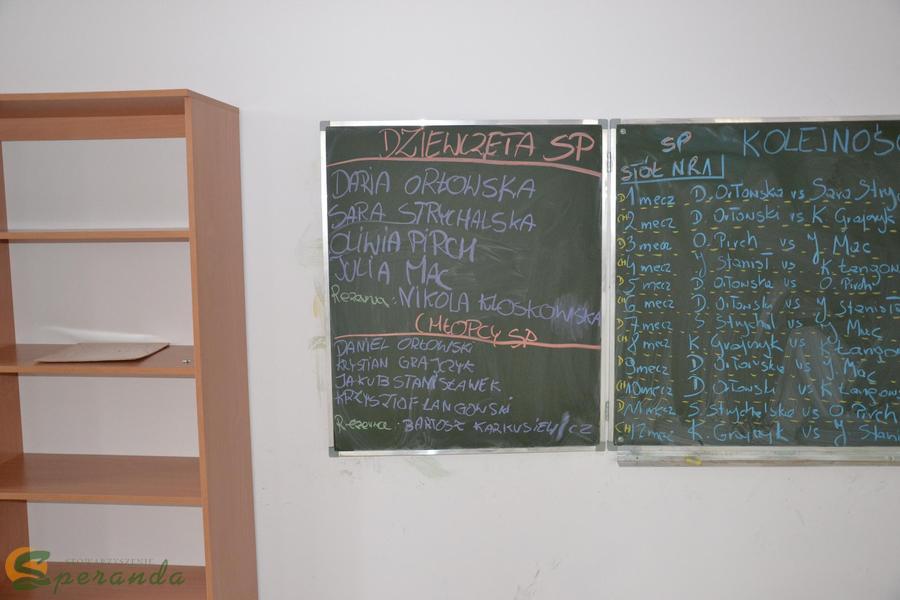 DZIEWCZĘTA SP
DARIA ORŁOWSKA
SARA STRYCHALSKA
OLIWIA PIRCH
JULIA MAC
Rezerwa: NIKOLA KŁOSKOWSKA
CHŁOPCY SP
DANIEL ORŁOWSKI
KRYSTIAN GRAJCZYK
JAKUB STANISŁAWEK
KRZYSZTOF LANGOWSKI
Rezerwa: BARTOSZ KARKUSIEWICZ
SP KOLEJNOŚĆ
STÓŁ NR 1
D 1 mecz D. Orłowska vs Sara Stry
CH 2 mecz D. Orłowski vs K Grajczyk
D 3 mecz O. Pirch vs J. Mac
CH 4 mecz J Stanisł vs K Langow
D 5 mecz D. Orłowska vs O. Pirch
CH 6 mecz D. Orłowski vs J. Stanisł
D 7 mecz S. Strychal vs J Mac
CH 8 mecz K. Grajczyk vs K Langow
D 9 mecz D. Orłowska vs J. Mac
CH 10 mecz D. Orłowski vs K Langows
D 11 mecz S. Strychalska vs O. Pirch
CH 12 mecz K. Grajczyk vs J Stani
STOWARZYSZENIE
Speranda